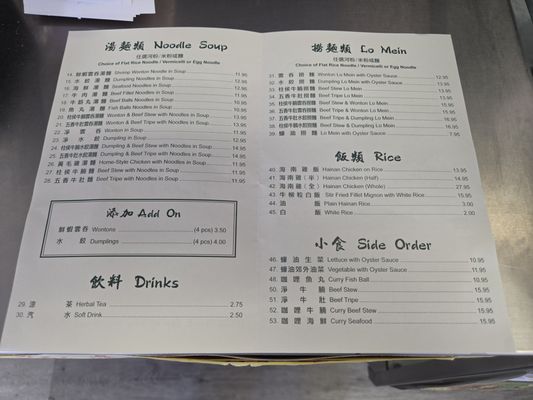 湯麵類 Noodle Soup
任選河粉/米粉或麵
Choice of Flat Rice Noodle / Vermicelli or Egg Noodle
14. 鮮蝦雲吞湯麵 Shrimp Wonton Noodle in Soup 11.95
15. 水餃湯麵 Dumpling Noodles in Soup 12.95
16. 海鮮湯麵 Seafood Noodles in Soup 12.95
17. 牛肉湯麵 Beef Fillet Noodles in Soup
18. 牛筋丸湯麵 Beef Balls Noodles in Soup 10.95
19. 魚丸湯麵 Fish Balls Noodles in Soup 10.95
20. 柱侯牛腩雲吞湯麵 Wonton & Beef Stew with Noodles in Soup 13.95
21. 五香牛肚雲吞湯麵 Wonton & Beef Tripe with Noodles in Soup 13.95
22. 淨雲吞 Wonton in Soup
23. 淨水餃 Dumpling in Soup 12.95
24. 柱侯牛腩水餃湯麵 Dumpling & Beef Stew with Noodles in Soup 14.95
25. 五香牛肚水餃湯麵 Dumpling & Beef Tripe with Noodles in Soup 14.95
26. 黃毛雞湯麵 Home-Style Chicken with Noodles in Soup
27. 柱侯牛腩麵 Beef Stew with Noodles in Soup 11.95
28. 五香牛肚麵 Beef Tripe with Noodles in Soup 11.95
添加 Add On
鮮蝦雲吞 Wontons (4 pcs) 3.50
水餃 Dumplings (4 pcs) 4.00
飲料 Drinks
29. 涼茶 Herbal Tea 2.75
30. 汽水 Soft Drink 2.50
撈麵類 Lo Mein
任選河粉/米粉或麵
Choice of Flat Rice Noodle / Vermicelli or Egg Noodle
31. 雲吞撈麵 Wonton Lo Mein with Oyster Sauce 12.95
32. 水餃撈麵 Dumpling Lo Mein with Oyster Sauce 13.95
33. 柱侯牛腩撈麵 Beef Stew Lo Mein
34. 五香牛肚撈麵 Beef Tripe Lo Mein 13.95
35. 柱侯牛腩雲吞撈麵 Beef Stew & Wonton Lo Mein 15.95
36. 五香牛肚雲吞撈麵 Beef Tripe & Wonton Lo Mein 15.95
37. 五香牛肚水餃撈麵 Beef Tripe & Dumpling Lo Mein 16.95
38. 柱侯牛腩水餃撈麵 Beef Stew & Dumpling Lo Mein 16.95
39. 蠔油撈麵 Lo Mein with Oyster Sauce 7.95
飯類 Rice
40. 海南雞飯 Hainan Chicken on Rice 13.95
41. 海南雞(半) Hainan Chicken (Half) 14.95
42. 海南雞(全) Hainan Chicken (Whole) 27.95
43. 牛柳粒白飯 Stir Fried Fillet Mignon with White Rice 15.95
44. 油飯 Plain Hainan Rice 3.00
45. 白飯 White Rice 2.00
小食 Side Order
46. 蠔油生菜 Lettuce with Oyster Sauce 10.95
47. 蠔油郊外油菜 Vegetable with Oyster Sauce 11.95
48. 咖喱魚丸 Curry Fish Ball 10.95
50. 淨牛腩 Beef Stew 15.95
51. 淨牛肚 Beef Tripe 15.95
52. 咖喱牛腩 Curry Beef Stew 15.95
53. 咖喱海鮮 Curry Seafood 15.95